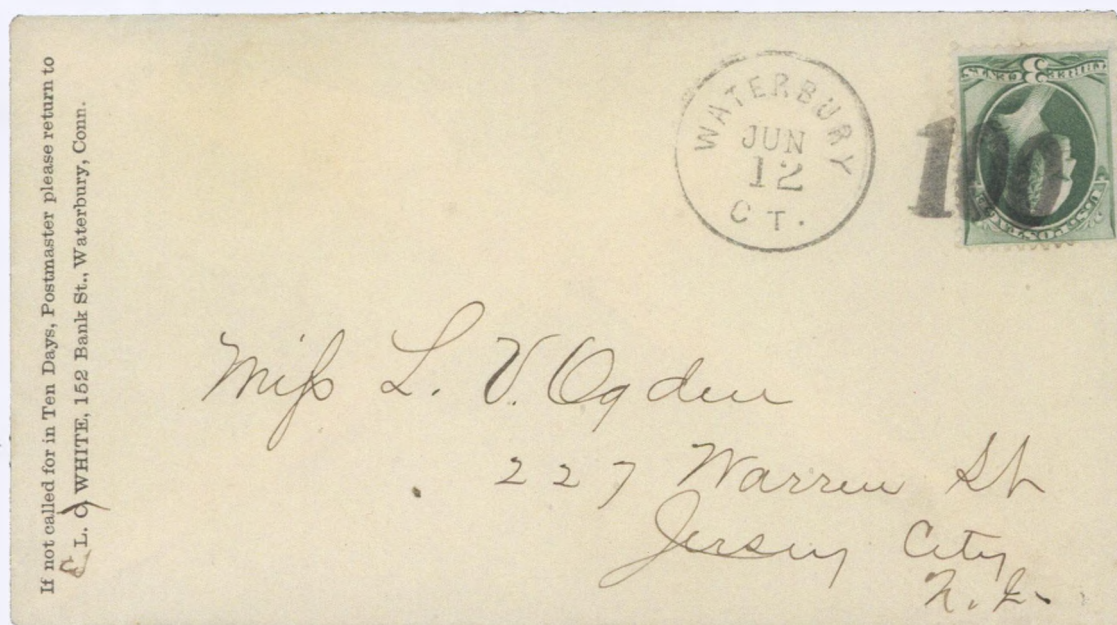 If not called for in Ten Days, Postmaster please return to
L. C. WHITE, 152 Bank St., Waterbury, Conn.
WATERBURY
JUN
12
CT.
100
Miss L. V. Ogden
227 Warren St
Jersey City
N. J.